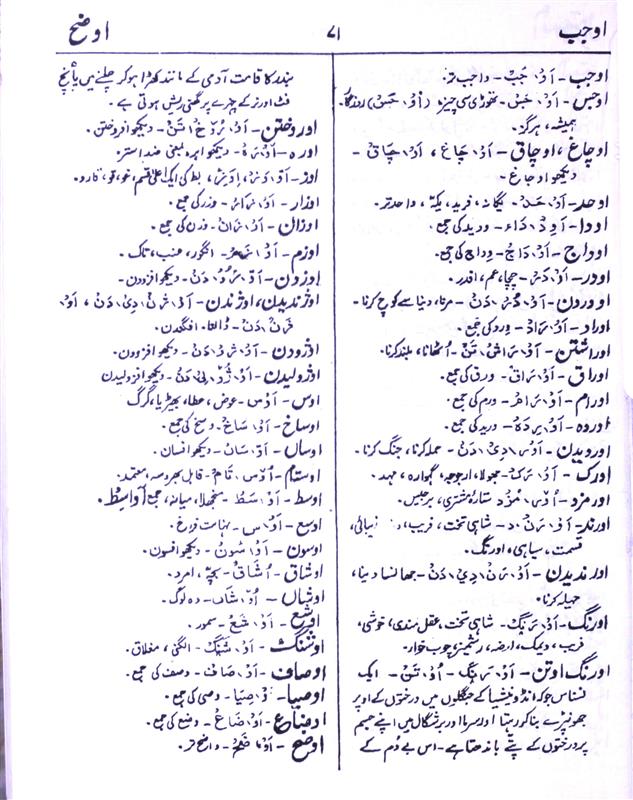 اوجب
۷۱
اوضح
اوجب - اَوْ، جَبْ - واجب تر.
اوجس - اَوْ، جَسْ - تھوڑی سی چیز، (اَوْ، جَسْ) روزگار،
ہمیشہ، ہرگز.
اوچاغ، اوچاق - اَوْ، چَاغْ، اَوْ، چَاقْ -
دیکھو اوجاغ -
اوحد - اَوْ، حَدْ - یگانہ، فرید، یکتا، واحد تر.
اودا - اَوِدْ، دَاء - ودید کی جمع.
اوداج - اَوْ، دَاجْ - وداج کی جمع.
اودر - اَوْ، دَرْ - چچا، عم، افدر.
اووردن - اَوْ، دَنْ - مرنا، دنیا سے کوچ کرنا -
اوراد - اَوْ، رَادْ - ورد کی جمع.
اوراشتن - اَوْ، رَاشْ، تَنْ - اُٹھانا، بلند کرنا.
اوراق - اَوْ، رَاقْ - ورق کی جمع.
اورام - اَوْ، رَامْ - ورم کی جمع.
اوردہ - اَوْ، رِدَہْ - ورید کی جمع.
اورویدن - دِیْ، دَنْ - حملہ کرنا، جنگ کرنا.
اورک - اَوْ، رَکْ - جھولا، ارجوجہ، گہوارہ، مہد.
اورمزد - مُزْد ستارۂ مشتری، برجیس.
اورند - اَوْ، رَنْ، د - شاہی تخت، فریب، زیبائی،
قسمت، سیاہی، اورنگ.
اورندیدن - اَوْ، رَنْ، دِیْ، دَنْ - جھانسا دینا،
حیلہ کرنا.
اورنگ - اَوْ، رَنْگْ - شاہی تخت، عقل مندی، خوشی،
فریب، دیمک، ارضہ، چوب خوار.
اورنگ اوتن - اَوْ، رَنْگْ - اُوْ، تَنْ - ایک
نسناس جو کہ انڈونیشیا کے جنگلوں میں درختوں کے اوپر
جھونپڑے بنا کر رہتا اور سرما اور برشگال میں اپنے جسم
پر درختوں کے پتے باندھتا ہے - اس بے دُم کے
بندر کا قامت آدمی کے مانند کھڑا ہو کر چلنے میں پانچ
فٹ اور نر کے چہرے پر گھنی ریش ہوتی ہے.
اوروختن - اَوْ، رُوْ، خْ، تَنْ - دیکھو افروختن.
اورہ - اَوْ، رَہْ - دیکھو ابرہ بمعنی ضد استر.
اوز - اَوْ، وَزْ، اِوَزْ، بط کی ایک اعلیٰ قسم، غو، قو، کارو.
اوزار - اَوْ، زَارْ، وزر کی جمع.
اوزان - اَوْ، زَانْ - وزن کی جمع.
اوزم - اَوْ، زَمْ - انگور، عنب، تاک.
اوزدن - دَنْ - دیکھو افزودن -
اوژندیدن، اوژندن - اَوْ، ژَنْ، دِیْ، دَنْ، اَوْ،
ژَنْ، دَنْ - ڈالنا، افگندن.
اوژودن - اَوْ، ژُوْ، دَنْ - دیکھو افزودن.
اوژولیدن - اَوْ، ژُوْ، لِیْ، دَنْ - دیکھو افژولیدن
اوس - اَوْس - عوض، عطا، بھیڑیا، گرگ
اوساخ - اَوْ، سَاخْ - وسخ کی جمع.
اوسان - اَوْ، سَانْ - دیکھو افسان.
اوستام - اُوْس، تَامْ - قابل بھروسہ، معتمد.
اوسط - اَوْ، سَطْ - منجھلا، میانہ، جمع اواسط.
اوسع - اَوْ، س - نہایت فراخ.
اوسون - اَوْ، سُونْ - دیکھو افسون.
اوشاق - اُشَاقْ - بچہ، امرد.
اوشاں - اُوْ، شَاں - وہ لوگ.
اوشع - اَوْ، شَعْ - سمور.
اوشنگ - اَوْ، شَنْگْ - الگنی، مغلاق.
اوصاف - اَوْ، صَافْ - وصف کی جمع.
اوصیا - اَوْ، صِیَا - وصی کی جمع.
اوضاع - اَوْ، ضَاعْ - وضع کی جمع -
اوضح - اَوْ، ضَحْ - واضح تر.